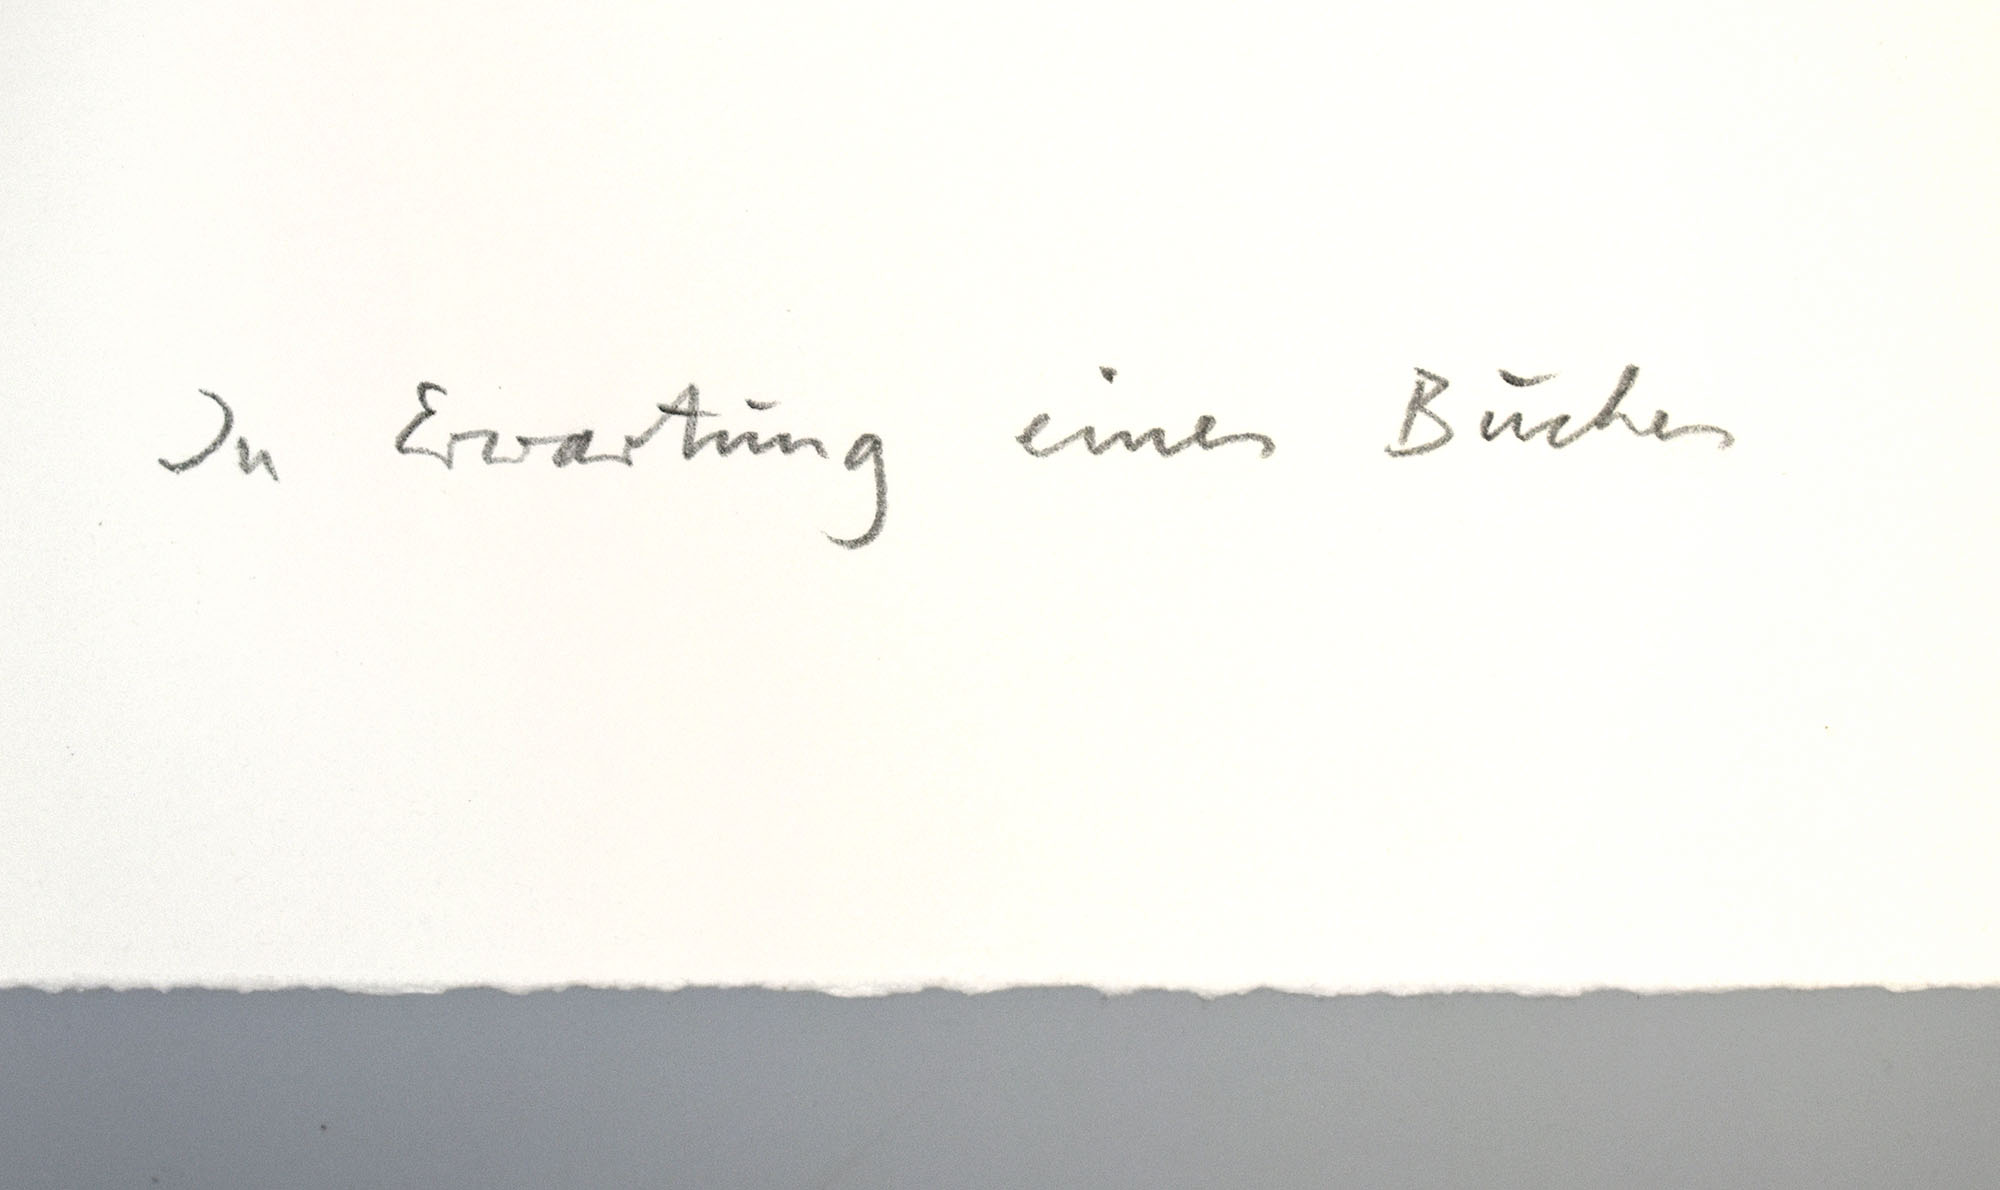 In Erwartung eines Buches